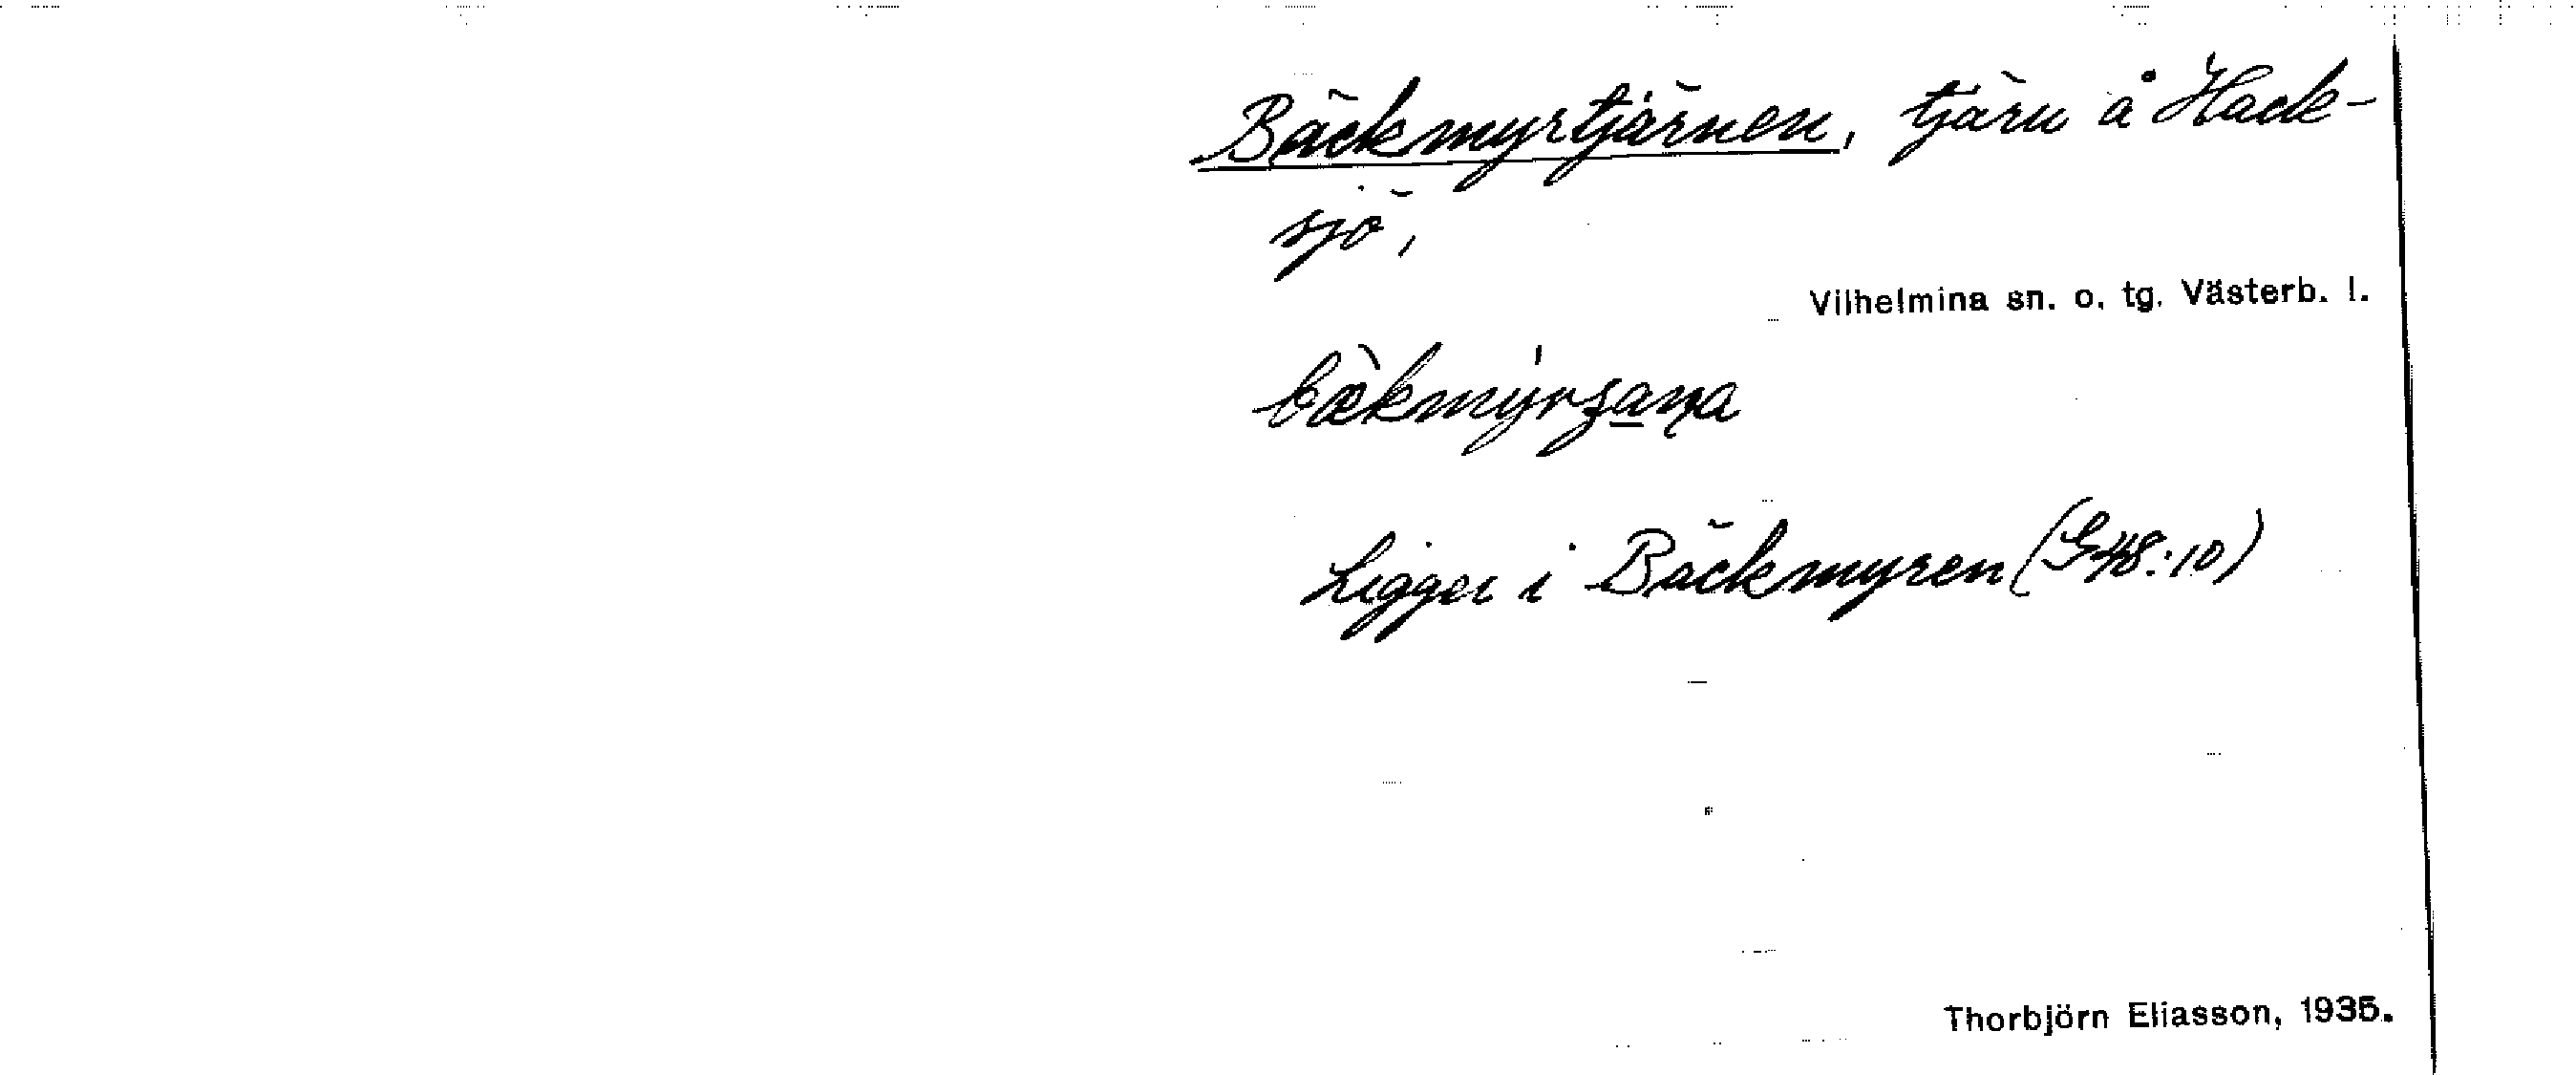 Bäckmyrtjärnen, tjärn å Hack-
sjö,
Vilhelmina sn. o. tg. Västerb. l.
Ligger i Bäckmyren (G48:10)
Thorbjörn Eliasson, 1935.